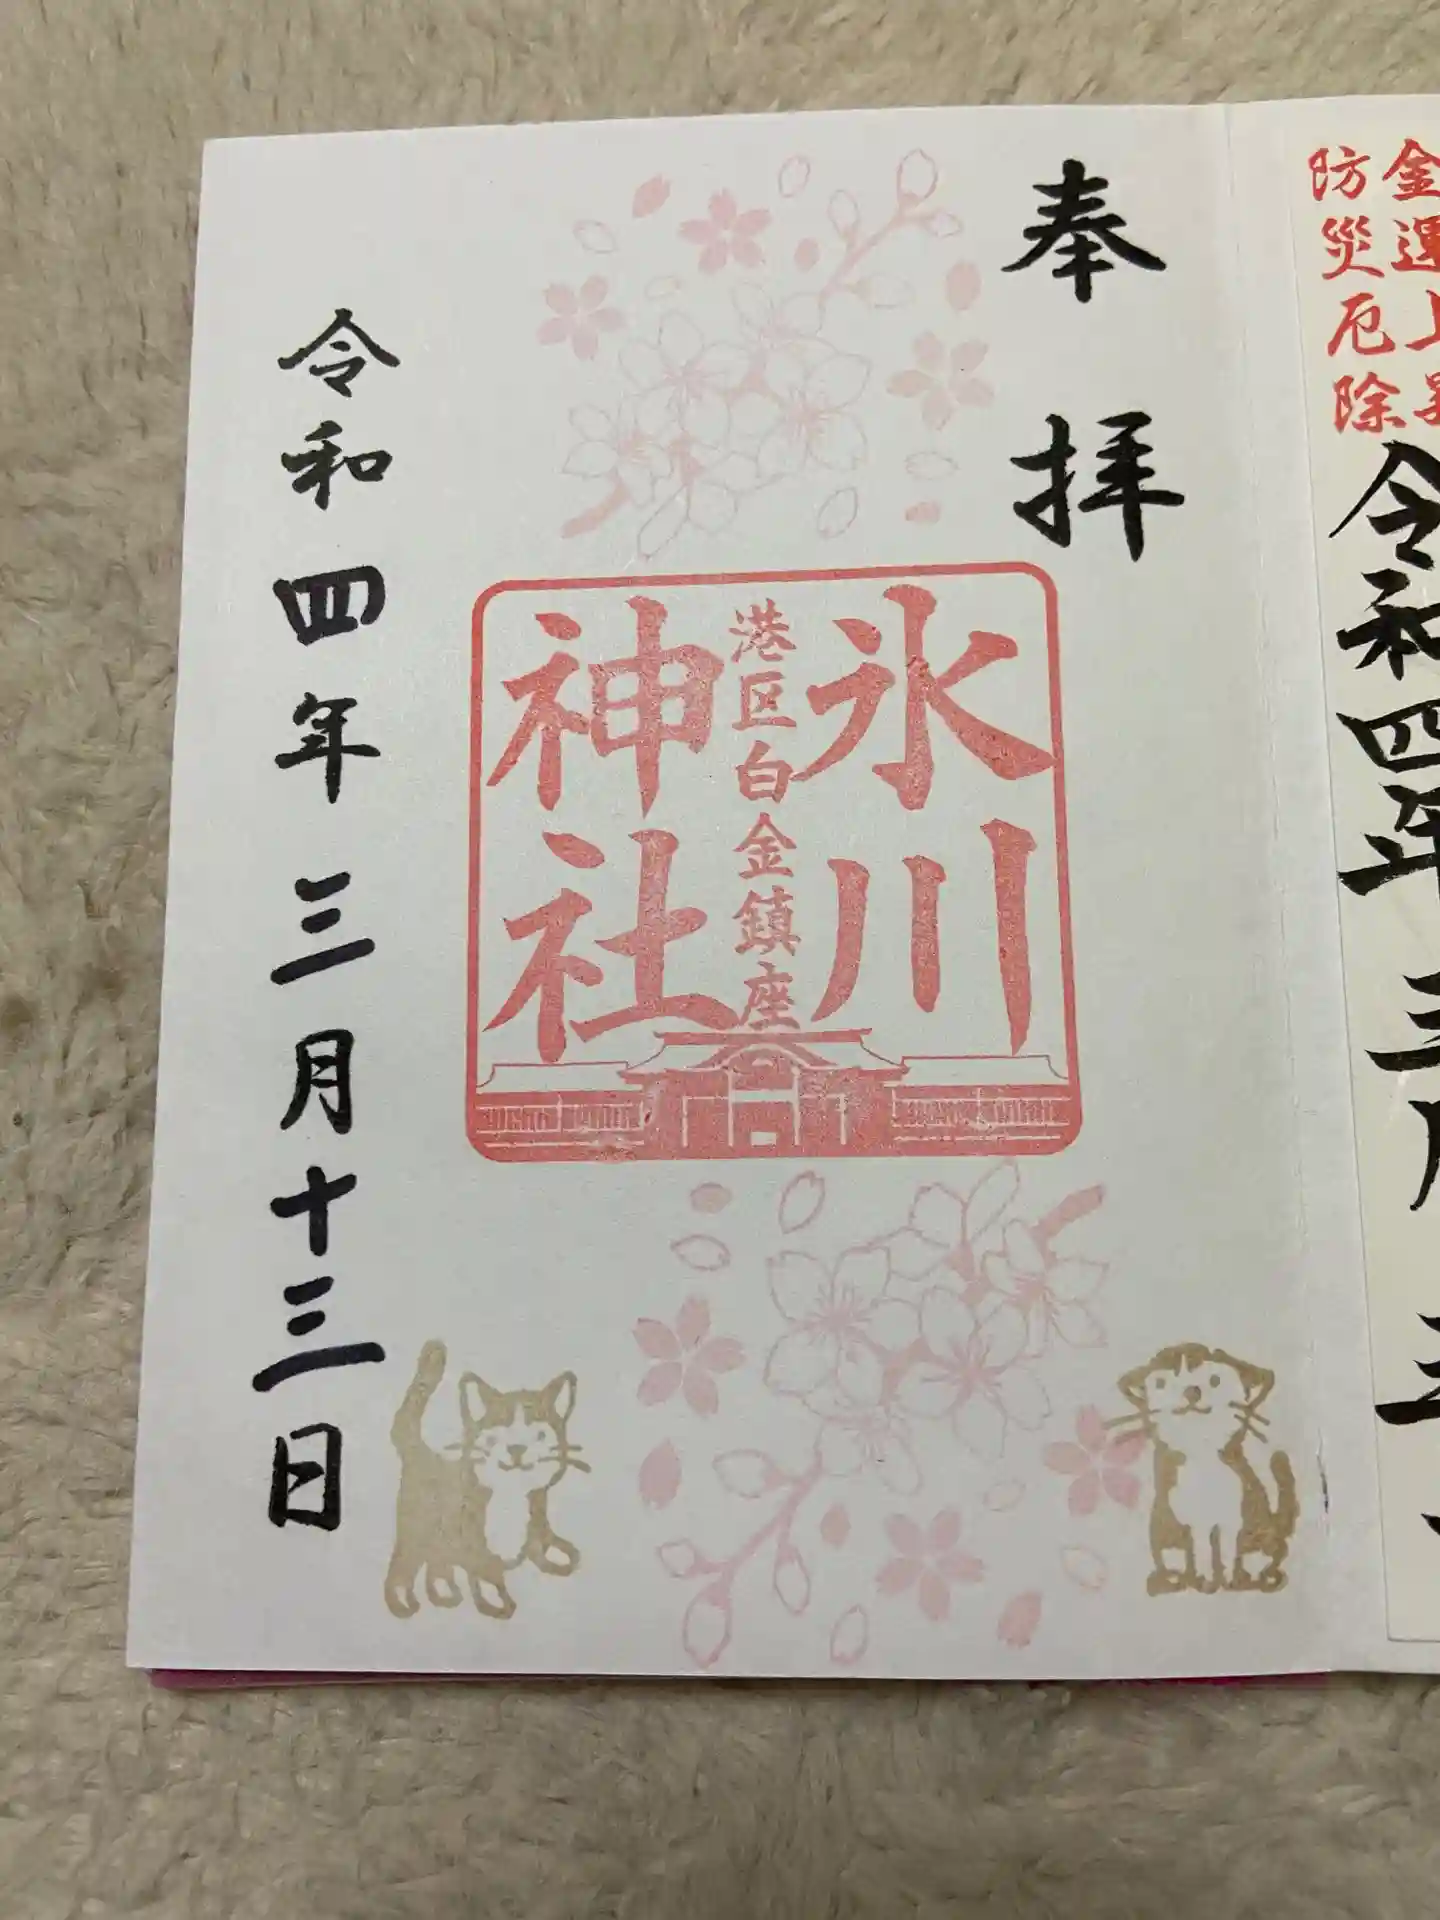 防災厄除
令和四年三月
奉拝
氷川
港区白金鎮座
神社
令和四年三月十三日